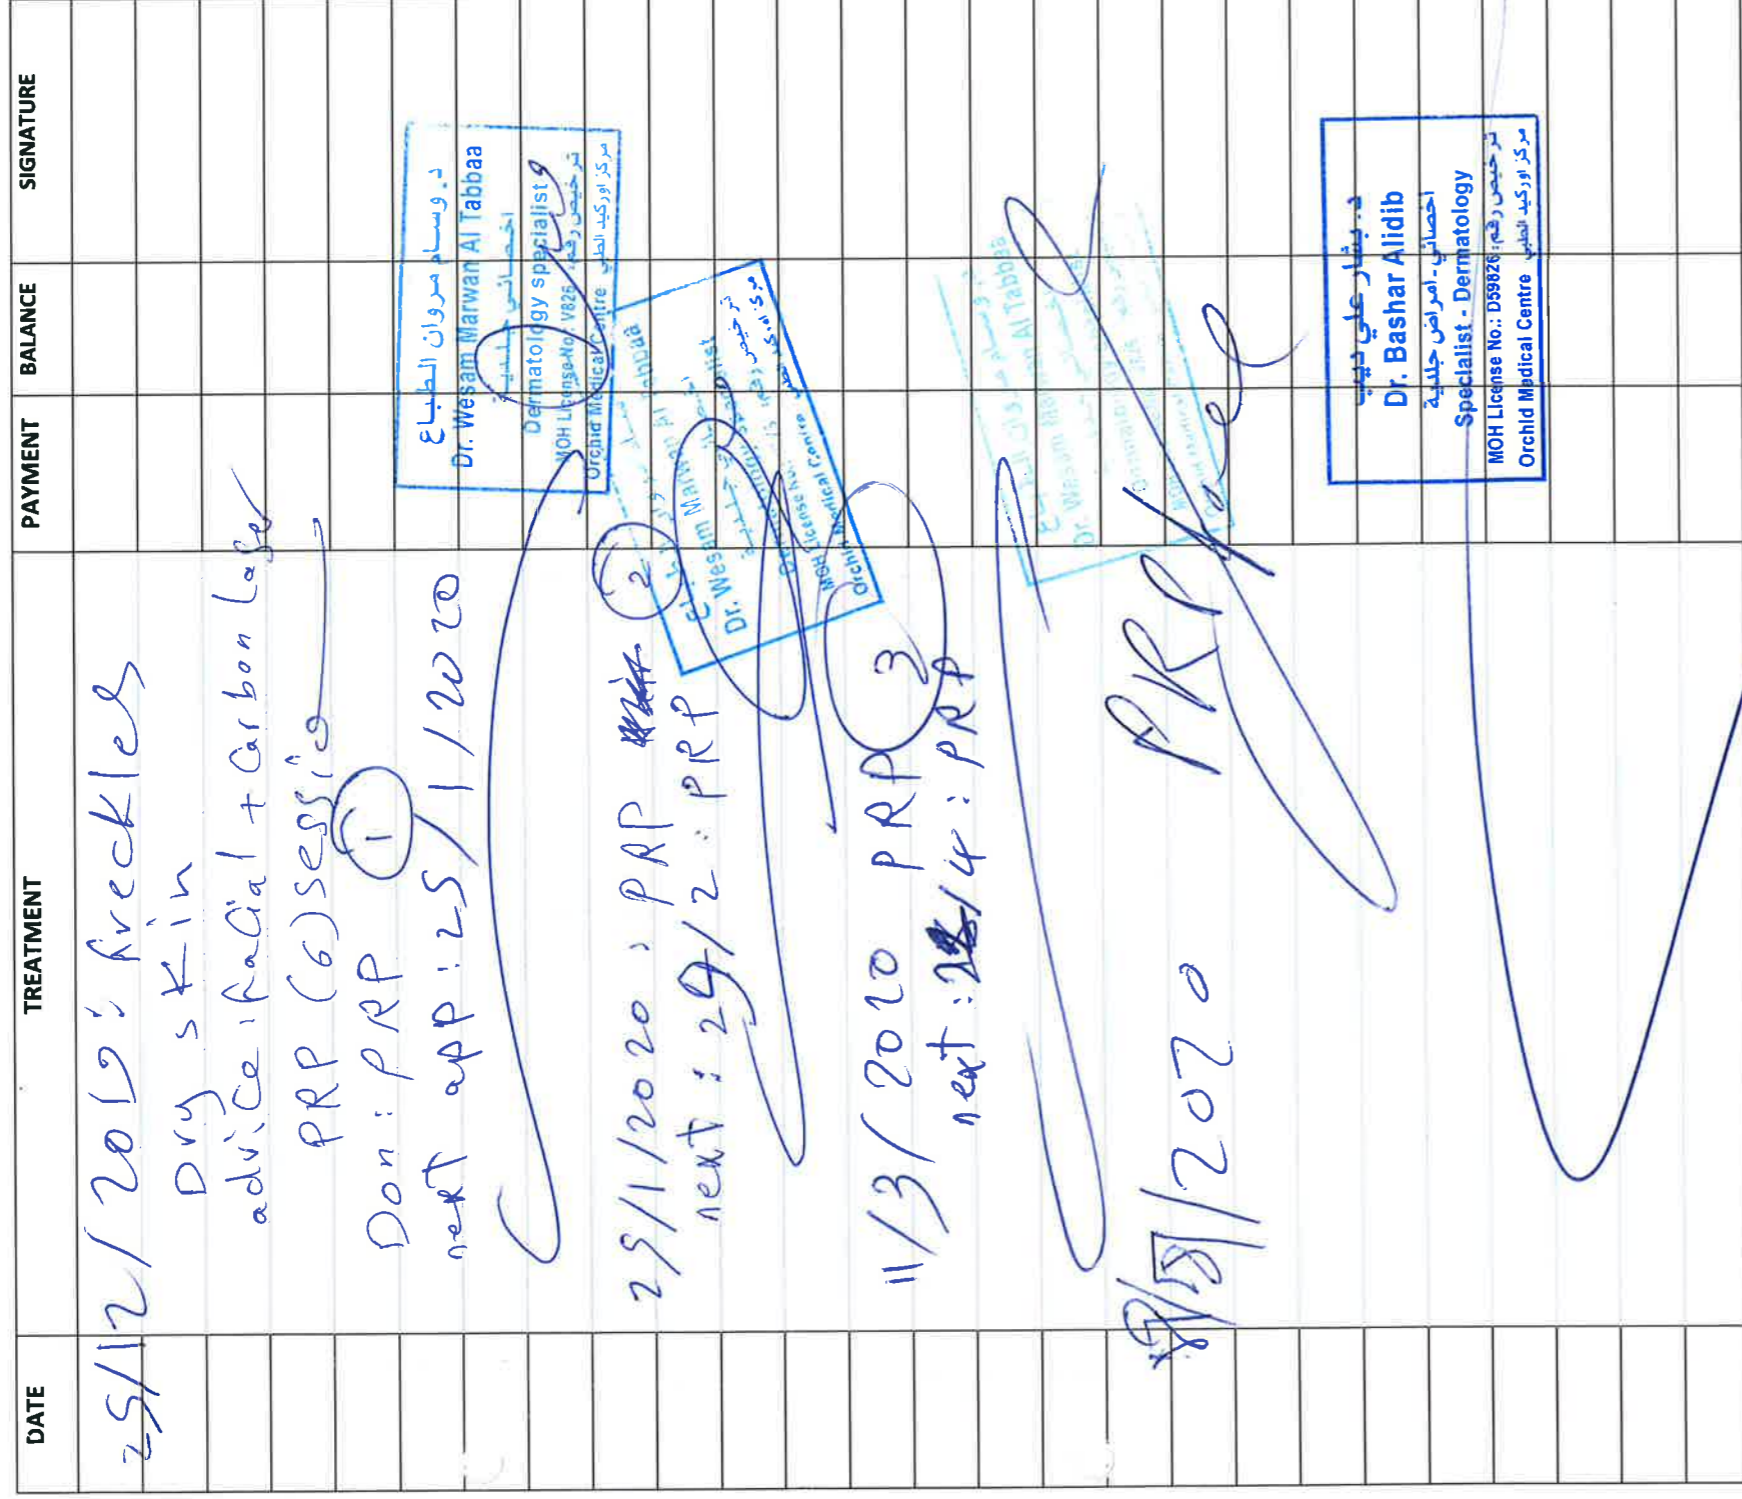 DATE TREATMENT PAYMENT BALANCE SIGNATURE
25/12/2019: freckles
Dry skin
advice: facial + Carbon Laser
PRP (6) sessio
Don: PRP 1
next app: 25/1/2020
د. وسام مروان الطباع
Dr. Wesam Marwan Al Tabbaa
اخصائي جلدية
Dermatology specialist
MOH License No: V826 ترخيص رقم:
Orchid Medical Centre مركز اوركيد الطبي
29/1/2020: PRP 2
next: 29/2: PRP
Dr. Wesam Marwan Al Tabbaa
MOH License No.
Orchid Medical Centre
11/3/2020 PRP 3
next: /4: PRP
Dr. Wesam Marwan Al Tabbaa
/2020 PRP
د. بشار علي ديب
Dr. Bashar Alidib
اخصائي - امراض جلدية
Specialist - Dermatology
MOH License No.: D59826 ترخيص رقم:
Orchid Medical Centre مركز اوركيد الطبي